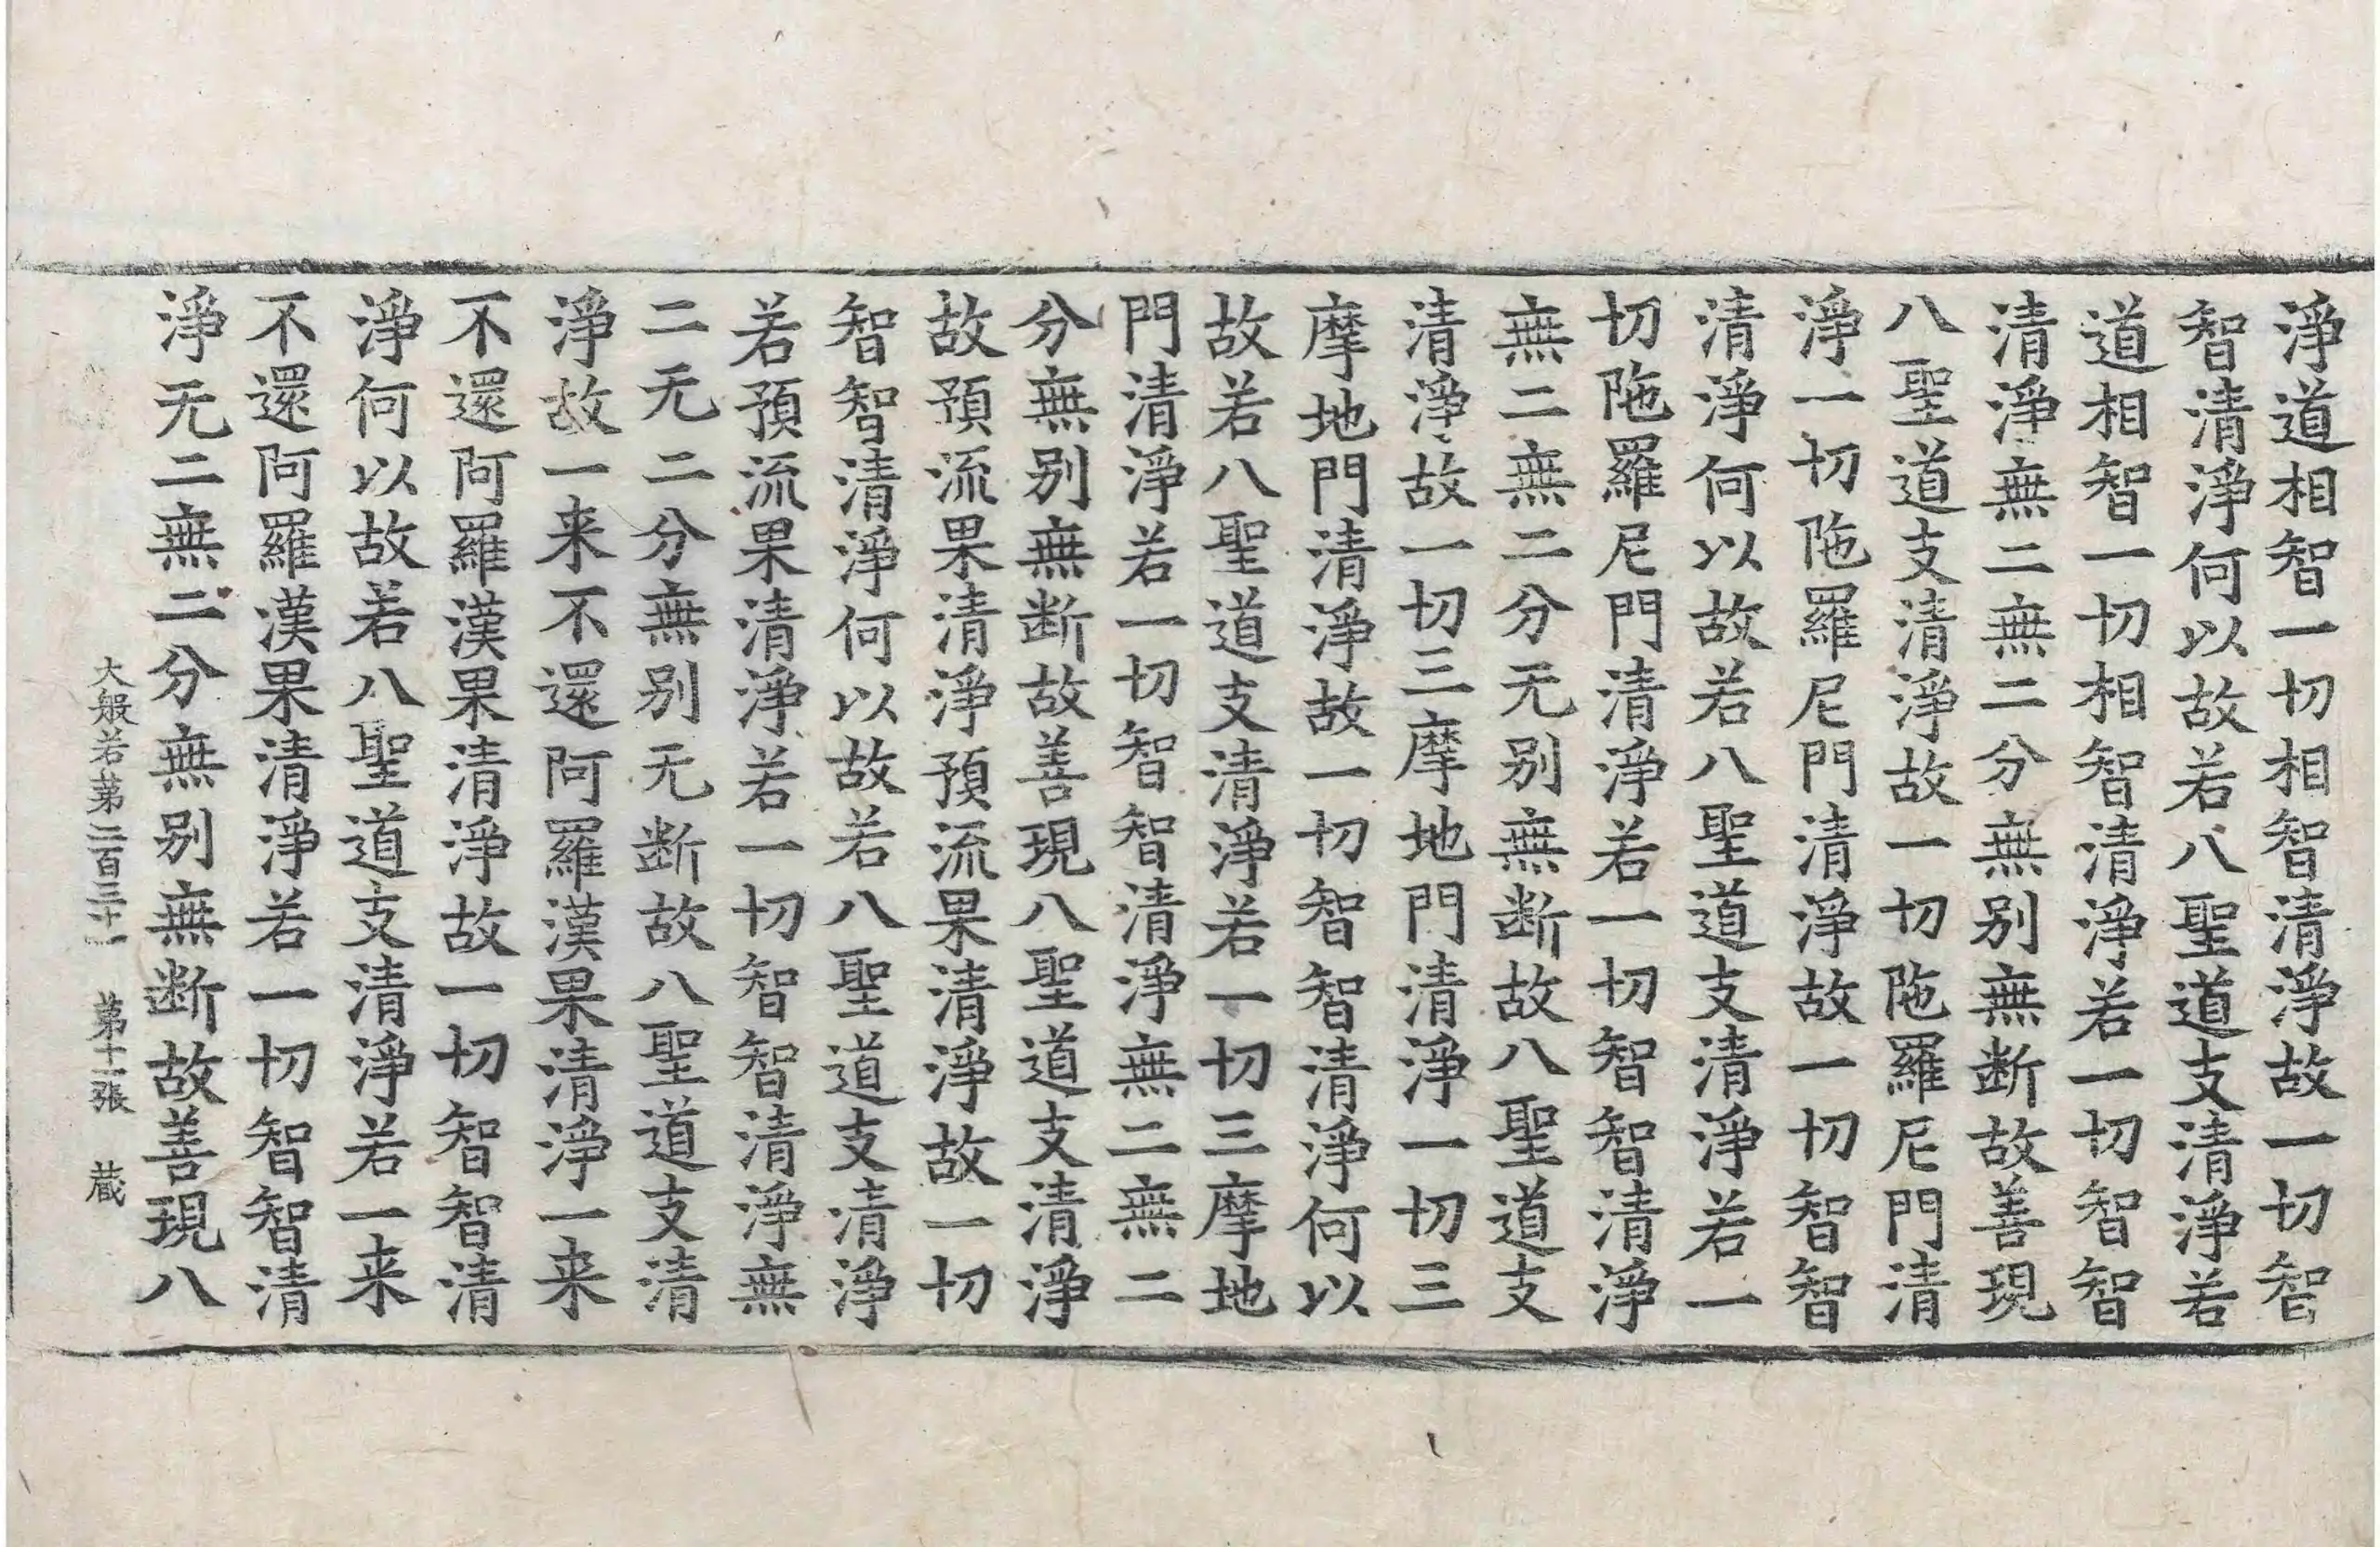 淨道相智一切相智清淨故一切智
智清淨何以故若八聖道支清淨若
道相智一切相智清淨若一切智智
清淨無二無二分無别無断故善現
八聖道支清淨故一切陁羅尼門清
淨一切陁羅尼門清淨故一切智智
清淨何以故若八聖道支清淨若一
切陁羅尼門清淨若一切智智清淨
無二無二分无别無断故八聖道支
清淨故一切三摩地門清淨一切三
摩地門清淨故一切智智清淨何以
故若八聖道支清淨若一切三摩地
門清淨若一切智智清淨無二無二
分無别無断故善現八聖道支清淨
故預流果清淨預流果清淨故一切
智智清淨何以故若八聖道支清淨
若預流果清淨若一切智智清淨無
二无二分無别无断故八聖道支清
淨故一来不還阿羅漢果清淨一来
不還阿羅漢果清淨故一切智智清
淨何以故若八聖道支清淨若一来
不還阿羅漢果清淨若一切智智清
淨无二無二分無别無断故善現八
大般若第二百三十一 第十二張 蔵